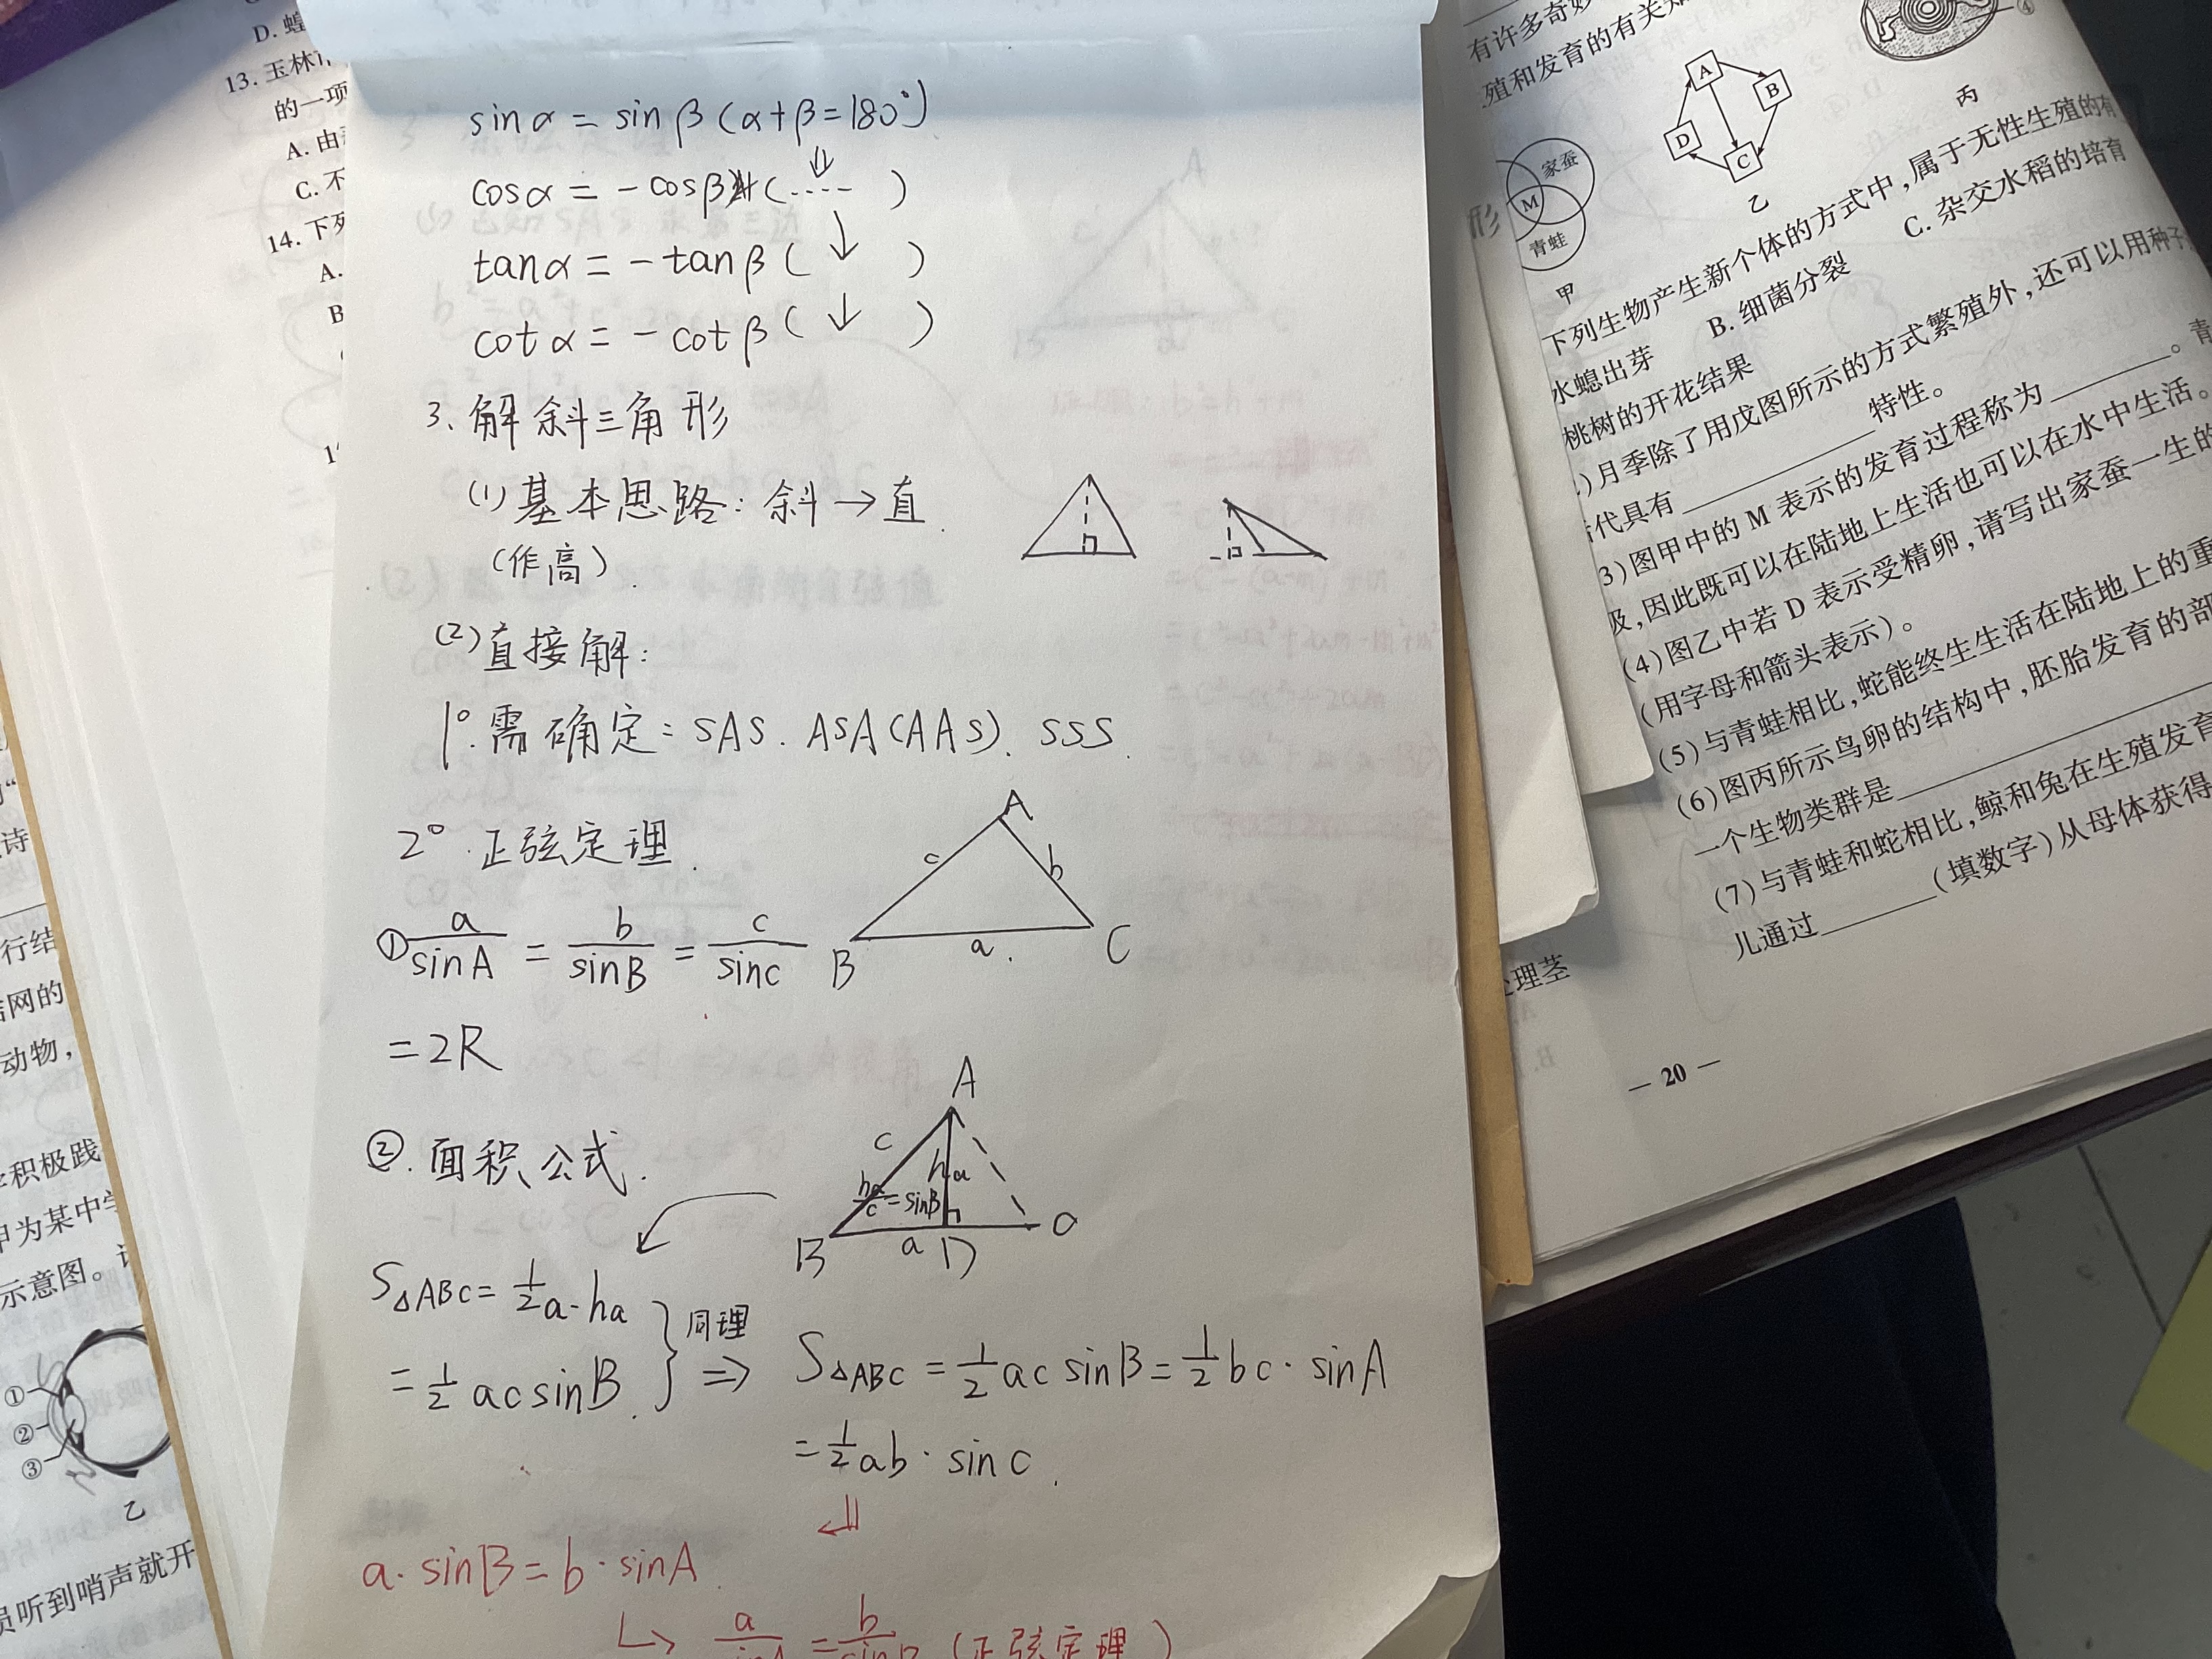 sinα = sinβ (α+β=180°)
⇓
cosα = -cosβ (····-)
↓
tanα = -tanβ ( ↓ )
cotα = -cotβ ( ↓ )
3、解斜三角形
(1)基本思路：斜→直.
(作高).
(2)直接解：
1°.需确定：SAS. ASA(AAS). SSS.
2°.正弦定理.
A
c
b
B
a.
C
①a/sinA = b/sinB = c/sinc
=2R
②.面积公式.
A
c
ha
ha/c=sinB
B
a
D
S△ABC=½a·ha
=½acsinB.
同理
⇒
S△ABC=½ac sinB=½bc·sinA
=½ab·sinc.
a·sinB=b·sinA.
(正弦定理)
D.蝗
13.玉林
的一项
A.由
C.不
14.下列
A.
B
诗
行结
网的
动物,
积极践
甲为某中学
示意图。
①
②
③
乙
员听到哨声就开
有许多奇妙
殖和发育的有关
A
B
C
D
乙
丙
④
家蚕
M
青蛙
甲
形
下列生物产生新个体的方式中,属于无性生殖的有
水螅出芽
B.细菌分裂
C.杂交水稻的培育
桃树的开花结果
)月季除了用戊图所示的方式繁殖外,还可以用种子
代具有________特性。
3)图甲中的M表示的发育过程称为________。青
及,因此既可以在陆地上生活也可以在水中生活。
(4)图乙中若D表示受精卵,请写出家蚕一生的
(用字母和箭头表示)。
(5)与青蛙相比,蛇能终生生活在陆地上的重
(6)图丙所示鸟卵的结构中,胚胎发育的部
一个生物类群是________
(7)与青蛙和蛇相比,鲸和兔在生殖发育
儿通过________(填数字)从母体获得
处理茎
— 20 —